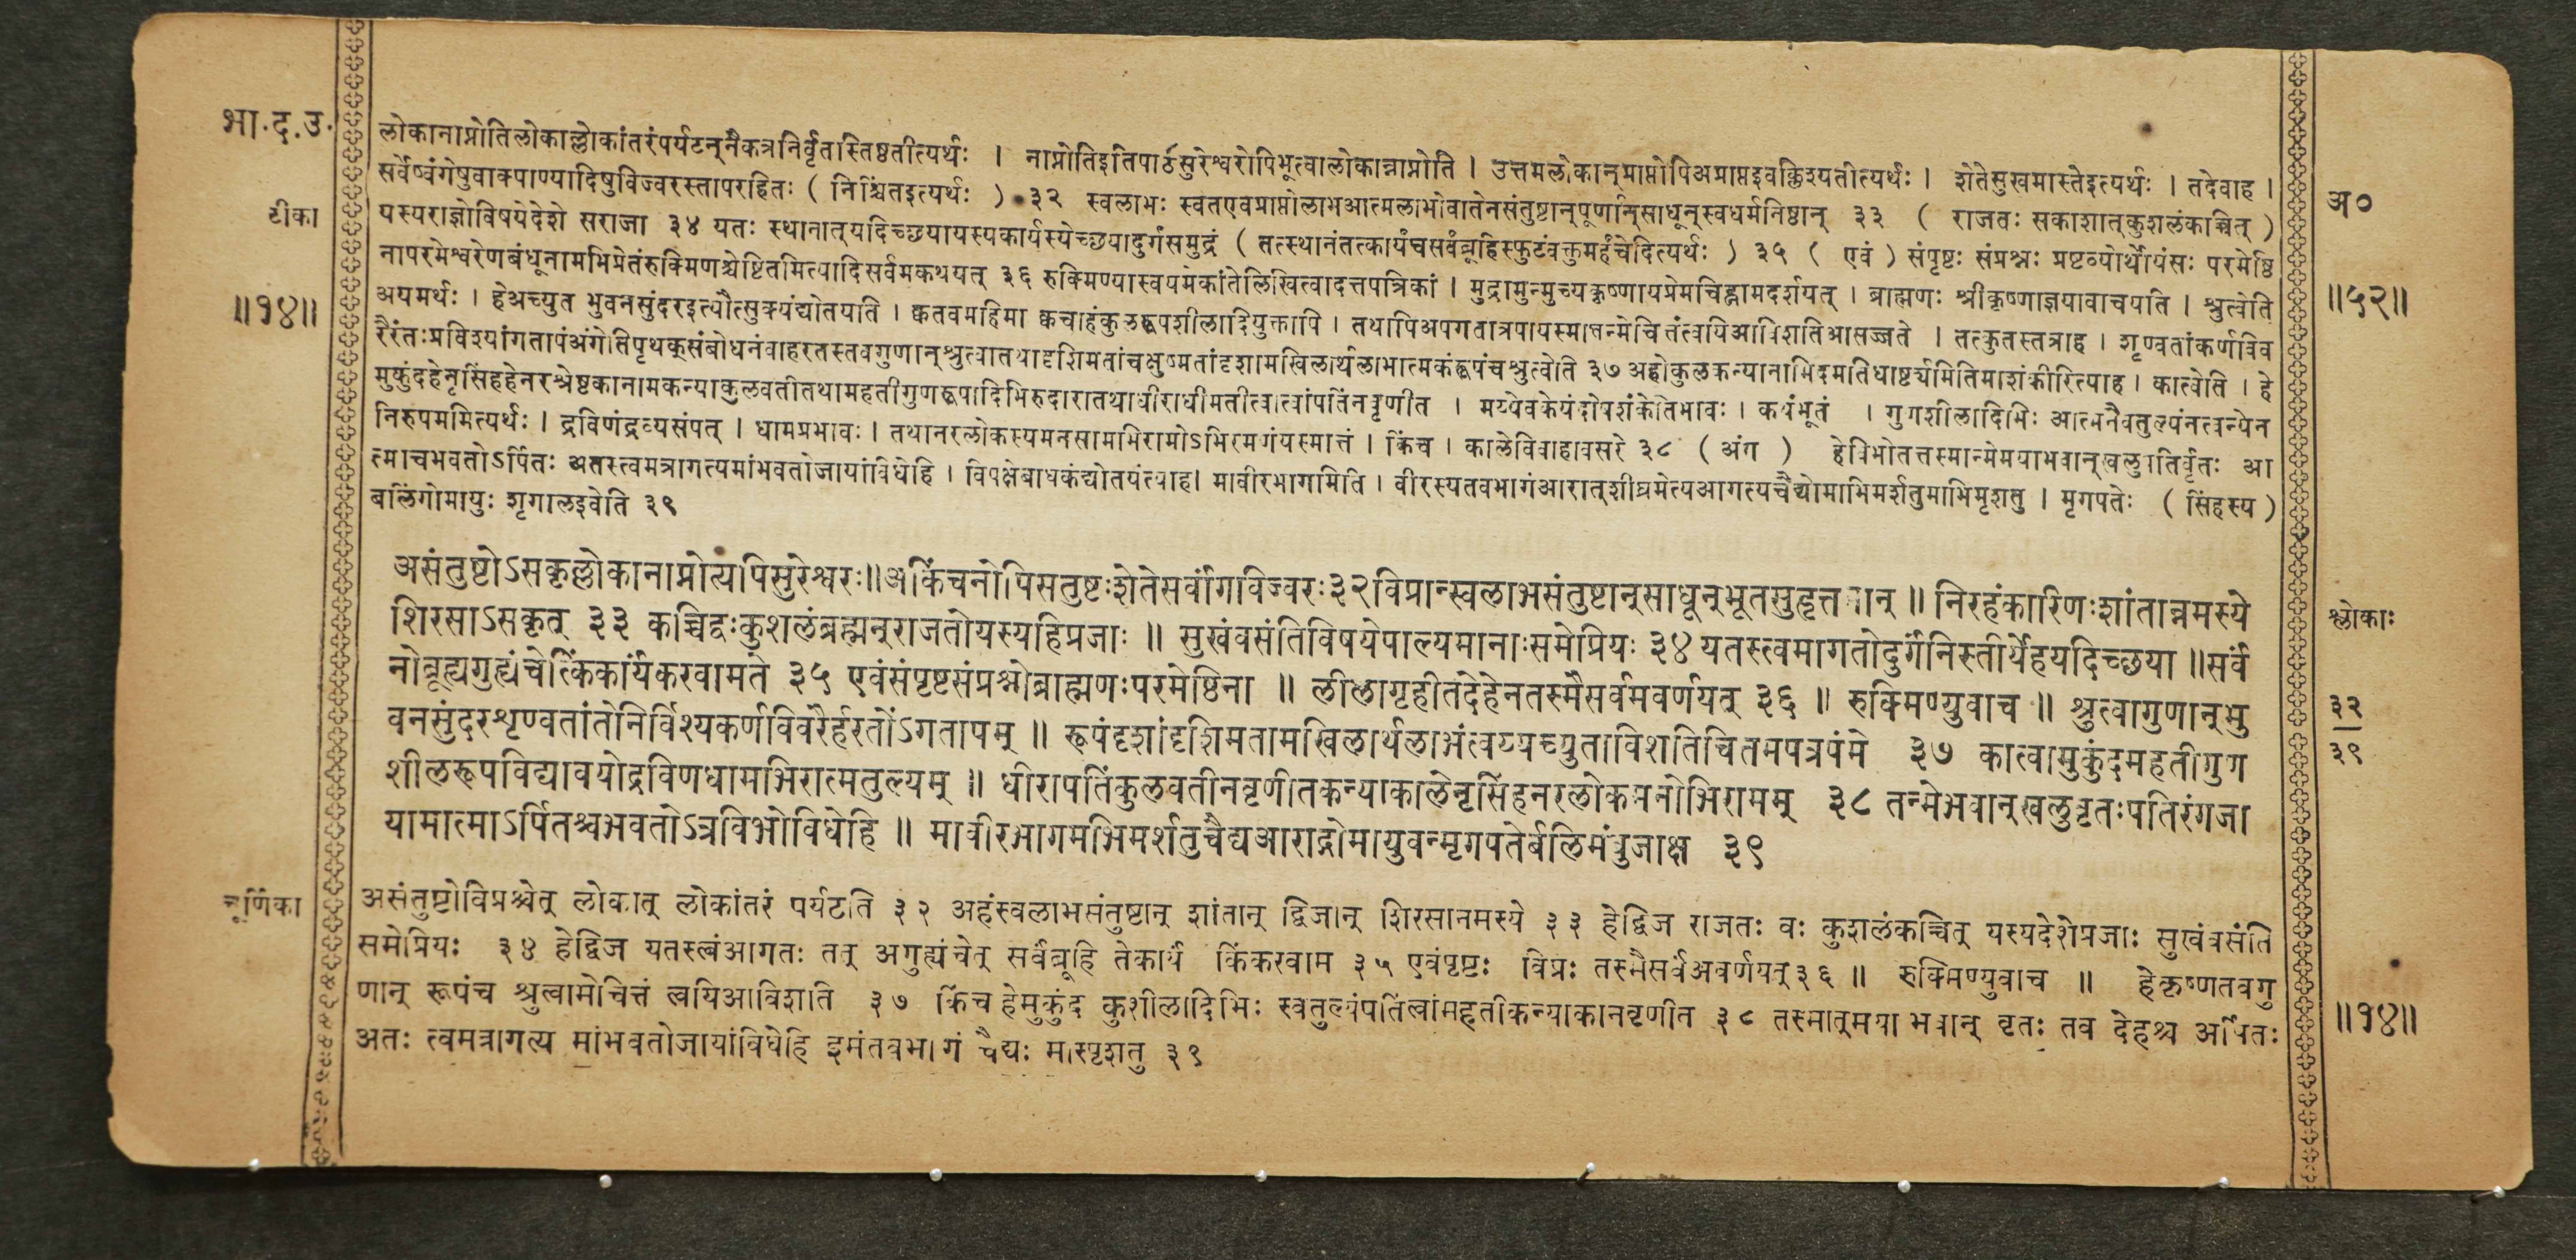 भा.द.उ.
टीका
॥१४॥
लोकानाप्नोतिलोकाल्लोकांतरंपर्यटन्नैकत्रनिर्वृतस्तिष्ठतीत्यर्थः । नाप्नोतिइतिपाठेसुरेश्वरोपिभूत्वालोकान्नाप्नोति । उत्तमलोकान्प्राप्तोपिअप्राप्तइवक्लिश्यतीत्यर्थः । शेतेसुखमास्तेइत्यर्थः । तदेवाह ।
सर्वेष्वंगेषुवाक्पाण्यादिषुविज्वरस्तापरहितः ( निश्चिंतइत्यर्थः ) ३२ स्वलाभः स्वतएवप्राप्तोलाभआत्मलाभोवातेनसंतुष्टान्पूर्णान्साधून्स्वधर्मनिष्ठान् ३३ ( राजतः सकाशात्कुशलंकाच्चित् )
यस्यराज्ञोविषयेदेशे सराजा ३४ यतः स्थानात्यदिच्छयायस्यकार्यस्येच्छयादुर्गंसमुद्रं ( तत्स्थानंतत्कार्यंचसर्वंब्रूहिस्फुटंवक्तुमर्हंचेदित्यर्थः ) ३५ ( एवं ) संपृष्टः संप्रश्नः प्रष्टव्योर्थोयंसः परमेष्ठि
नापरमेश्वरेणबंधूनामभिप्रेतंरुक्मिणश्चेष्टितमित्यादिसर्वमकथयत् ३६ रुक्मिण्यास्वयमेकांतेलिखित्वादत्तपत्रिकां । मुद्रामुन्मुच्यकृष्णायप्रेमचिह्नामदर्शयत् । ब्राह्मणः श्रीकृष्णाज्ञयावाचयति । श्रुत्वेति
अयमर्थः । हेअच्युत भुवनसुंदरइत्यौत्सुक्यंद्योतयति । क्कतवमहिमा क्कचाहंकुलरूपशीलादियुक्तापि । तथापिअपगतात्रपायस्मात्तन्मेचित्तंत्वयिआविशतिआसज्जते । तत्कुतस्तत्राह । शृण्वतांकर्णविव
रैरंतःप्रविश्यांगतापंअंगेतिपृथक्संबोधनंवाहरतस्तवगुणान्श्रुत्वातथादृशिमतांचक्षुष्मतांदृशामखिलार्थलाभात्मकंरूपंचश्रुत्वेति ३७ अहोकुलकन्यानामिदमतिधाष्टर्यमितिमाशंकीरित्याह । कात्वेति । हे
मुकुंदहेनृसिंहहेनरश्रेष्ठकानामकन्याकुलवतीतथामहतीगुणरूपादिभिरुदारातथाधीराधीमतीत्वात्वांपतिंनवृणीत । मय्येवकेयंदोषशंकेतिभावः । कथंभूतं । गुणशीलादिभिः आत्मनैवतुल्यंनत्वन्येन
निरुपममित्यर्थः । द्रविणंद्रव्यसंपत् । धामप्रभावः । तथानरलोकस्यमनसामभिरामोऽभिरमणंयस्मात्तं । किंच । कालेविवाहावसरे ३८ ( अंग ) हेविभोतत्तस्मान्मेमयाभवान्खलुपतिर्वृतः आ
त्माचभवतोऽर्पितः अतस्त्वमत्रागत्यमांभवतोजायांविधेहि । विपक्षेबाधकंद्योतयंत्याह। मावीरभागमिति । वीरस्यतवभागंआरात्शीघ्रमेत्यआगत्यचैद्योमाभिमर्शतुमाभिमृशतु । मृगपतेः ( सिंहस्य )
बलिंगोमायुः शृगालइवेति ३९
अ०
॥५२॥
असंतुष्टोऽसकृल्लोकानाप्नोत्यपिसुरेश्वरः॥अकिंचनोपिसंतुष्टःशेतेसर्वांगविज्वरः३२विप्रान्स्वलाभसंतुष्टान्साधून्भूतसुहृत्तमान् ॥ निरहंकारिणःशांतान्नमस्ये
शिरसाऽसकृत् ३३ कच्चिद्वःकुशलंब्रह्मन्राजतोयस्यहिप्रजाः ॥ सुखंवसंतिविषयेपाल्यमानाःसमेप्रियः ३४ यतस्त्वमागतोदुर्गंनिस्तीर्येहयदिच्छया ॥सर्वं
नोब्रूह्यगुह्यंचेत्किंकार्यंकरवामते ३५ एवंसंपृष्टसंप्रश्नोब्राह्मणःपरमेष्ठिना ॥ लीलागृहीतदेहेनतस्मैसर्वमवर्णयत् ३६ ॥ रुक्मिण्युवाच ॥ श्रुत्वागुणान्भु
वनसुंदरशृण्वतांतेनिर्विश्यकर्णविवरैर्हरतोंऽगतापम् ॥ रूपंदृशांदृशिमतामखिलार्थलाभंत्वय्यच्युताविशतिचित्तमपत्रपंमे ३७ कात्वामुकुंदमहतीगुण
शीलरूपविद्यावयोद्रविणधामभिरात्मतुल्यम् ॥ धीरापतिंकुलवतीनवृणीतकन्याकालेनृसिंहनरलोकमनोभिरामम् ३८ तन्मेभवान्खलुवृतःपतिरंगजा
यामात्माऽर्पितश्चभवतोऽत्रविभोविधेहि ॥ मावीरभागमभिमर्शतुचैद्यआराद्गोमायुवन्मृगपतेर्बलिमंबुजाक्ष ३९
श्लोकाः
३२
३९
चूर्णिका
असंतुष्टोविप्रश्चेत् लोकात् लोकांतरं पर्यटति ३२ अहंस्वलाभसंतुष्टान् शांतान् द्विजान् शिरसानमस्ये ३३ हेद्विज राजतः वः कुशलंकच्चित् यस्यदेशेप्रजाः सुखंवसंति
समेप्रियः ३४ हेद्विज यतस्त्वंआगतः तत् अगुह्यंचेत् सर्वंब्रूहि तेकार्यं किंकरवाम ३५ एवंपृष्टः विप्रः तस्मैसर्वंअवर्णयत्३६ ॥ रुक्मिण्युवाच ॥ हेकृष्णतवगु
णान् रूपंच श्रुत्वामेचित्तं त्वयिआविशति ३७ किंच हेमुकुंद कुशीलादिभिः स्वतुल्यंपतिंत्वांमहतीकन्याकानवृणीत ३८ तस्मात्मया भवान् वृतः तव देहश्च अर्पितः
अतः त्वमत्रागत्य मांभवतोजायांविधेहि इमंतवभागं चैद्यः मास्पृशतु ३९
॥१४॥